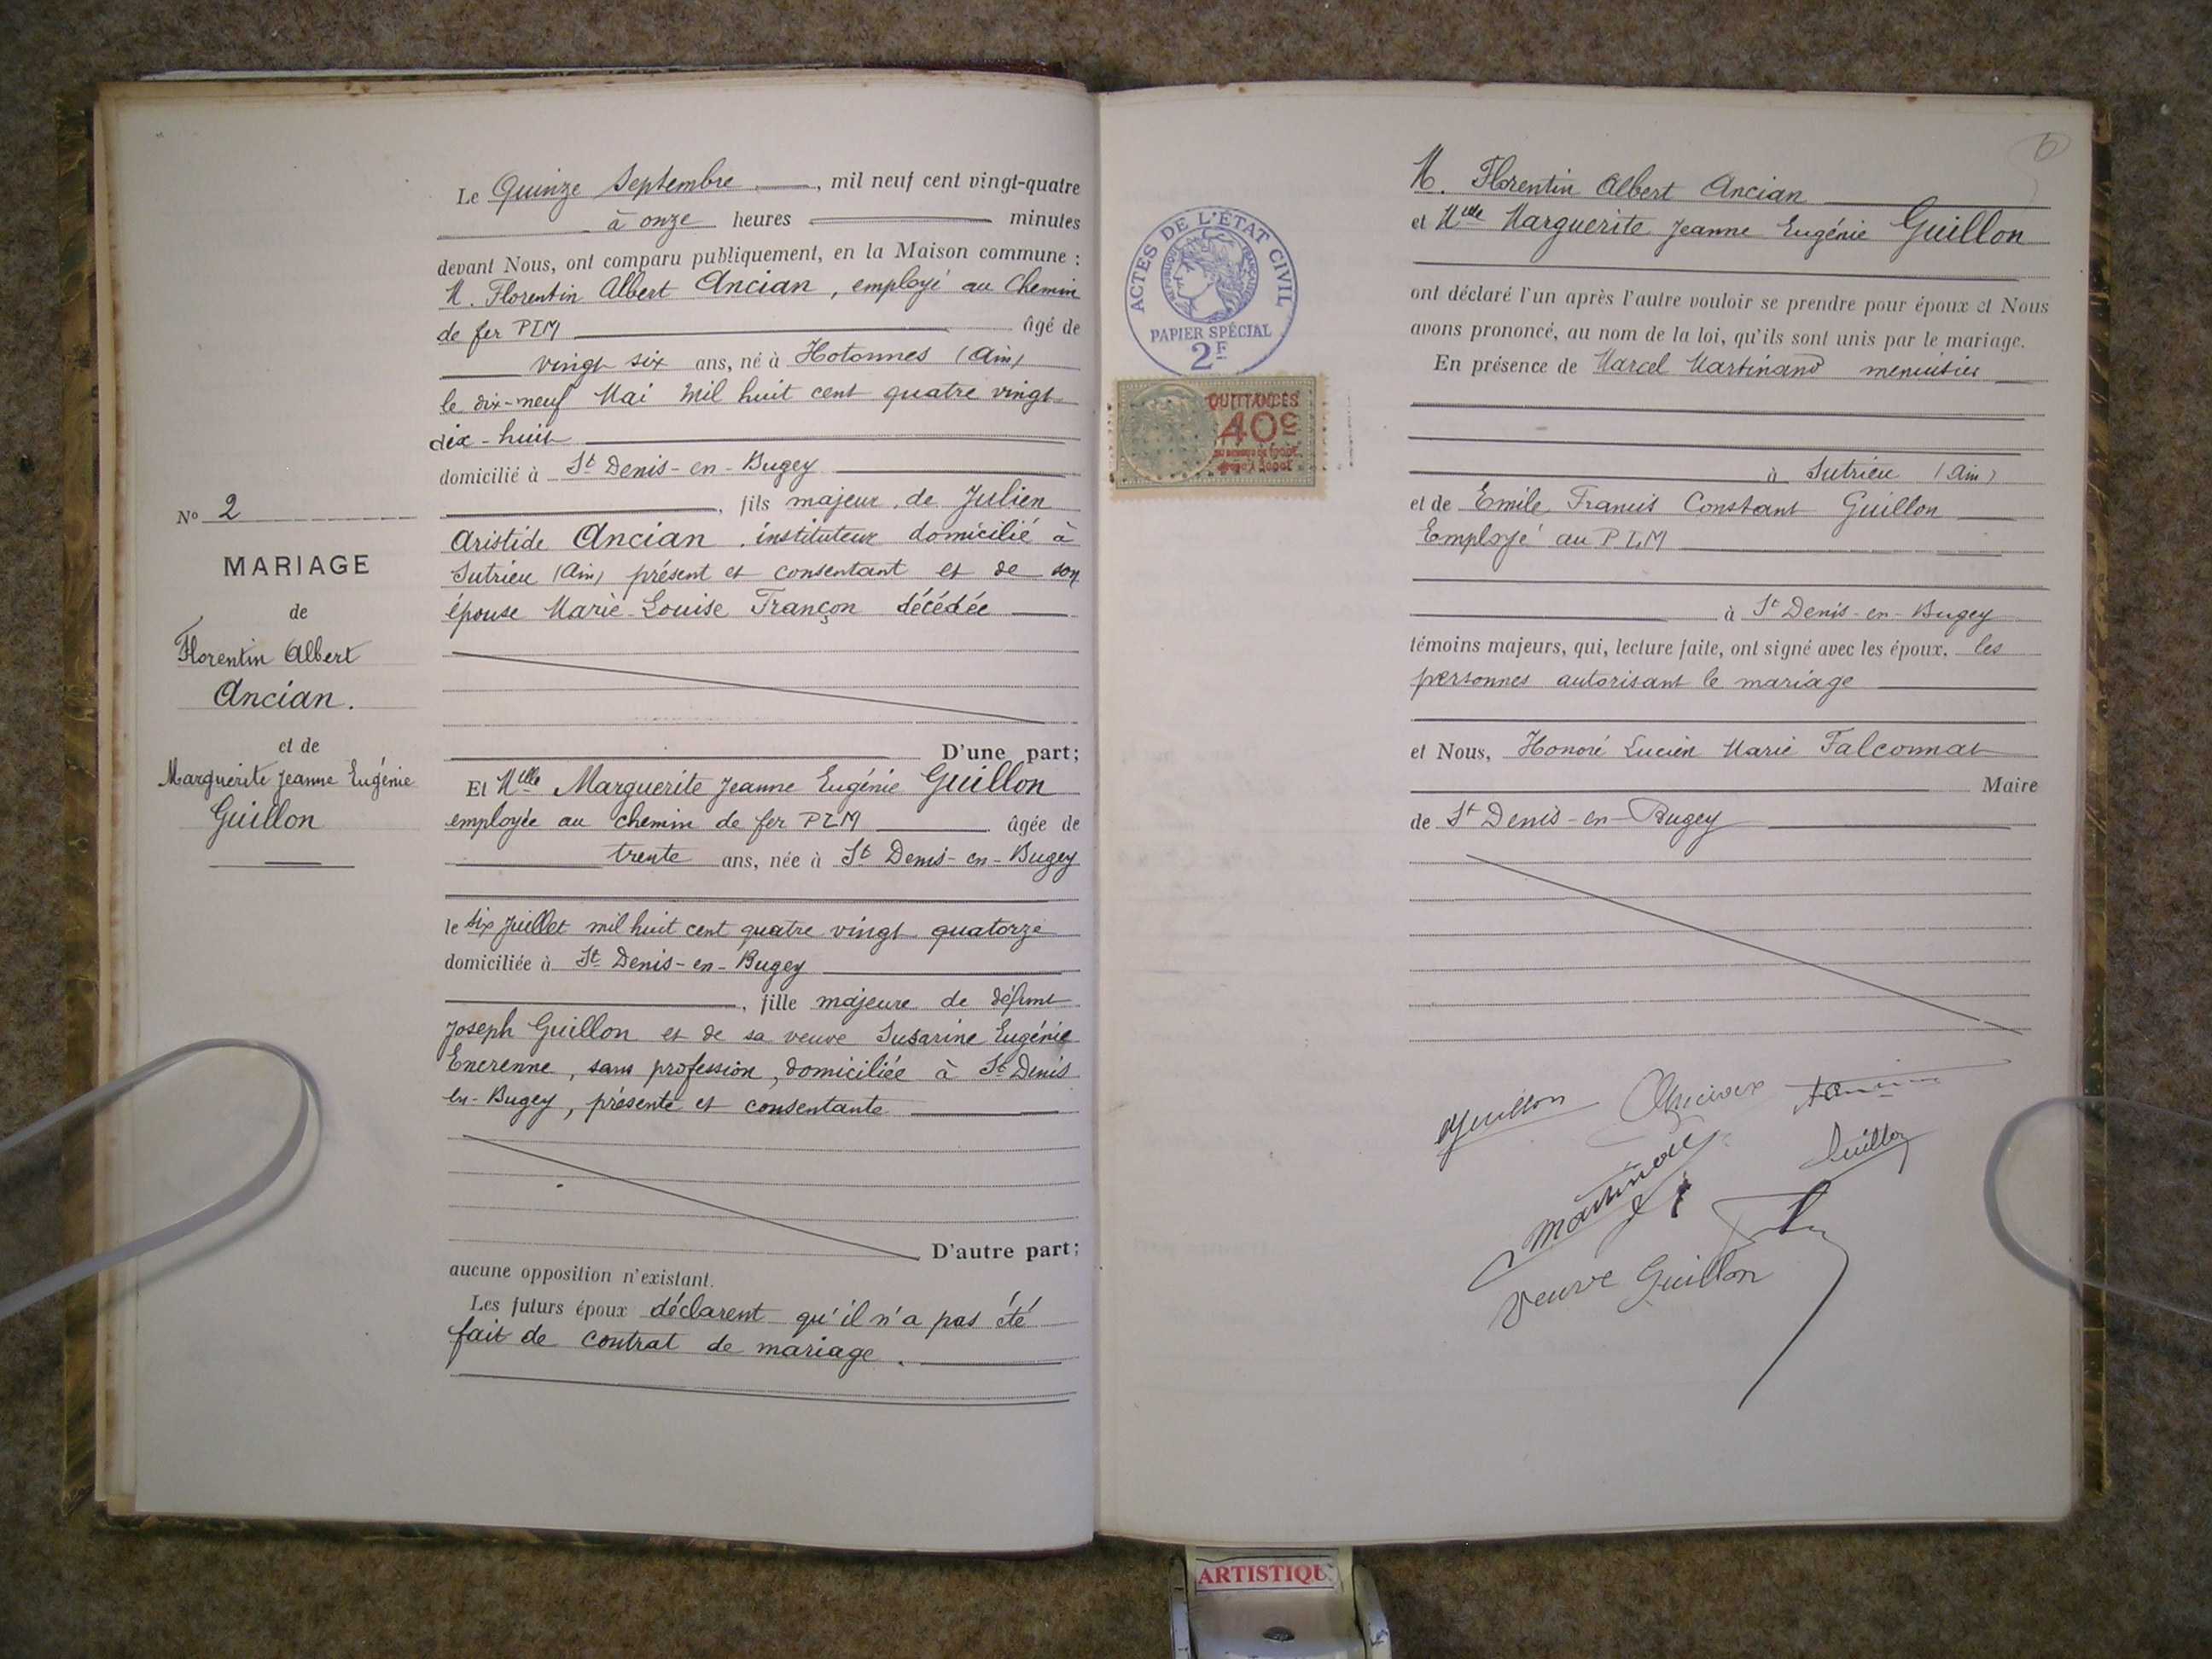 Le Quinze Septembre, mil neuf cent vingt-quatre
à onze heures minutes
devant Nous, ont comparu publiquement, en la Maison commune :
M. Florentin Albert Ancian, employé au Chemin
de fer PLM âgé de
vingt six ans, né à Hotonnes (Ain)
le dix-neuf Mai mil huit cent quatre vingt
dix-huit
domicilié à St Denis-en-Bugey
, fils majeur de Julien
Aristide Ancian, instituteur domicilié à
Sutrieu (Ain) présent et consentant et de son
épouse Marie-Louise Françon décédée
D'une part;
Et Mlle Marguerite Jeanne Eugénie Guillon
employée au chemin de fer PLM âgée de
trente ans, née à St Denis-en-Bugey
le six Juillet mil huit cent quatre vingt quatorze
domiciliée à St Denis-en-Bugey
, fille majeure de défunt
Joseph Guillon et de sa veuve Eugénie
Encrenne, sans profession, domiciliée à St Denis
en-Bugey, présente et consentante
D'autre part;
aucune opposition n'existant.
Les futurs époux déclarent qu'il n'a pas été
fait de contrat de mariage.
No 2
MARIAGE
de
Florentin Albert
Ancian.
et de
Marguerite Jeanne Eugénie
Guillon
ACTES DE L'ÉTAT CIVIL
RÉPUBLIQUE FRANÇAISE
PAPIER SPÉCIAL
2F
QUITTANCES
40c
M. Florentin Albert Ancian
et Mlle Marguerite Jeanne Eugénie Guillon
ont déclaré l'un après l'autre vouloir se prendre pour époux et Nous
avons prononcé, au nom de la loi, qu'ils sont unis par le mariage.
En présence de Marcel Martinand menuisier
à Sutrieu (Ain)
et de Emile Francis Constant Guillon
Employé au PLM
à St Denis-en-Bugey
témoins majeurs, qui, lecture faite, ont signé avec les époux, les
personnes autorisant le mariage
et Nous, Honoré Lucien Marie Falconnat
Maire
de St Denis-en-Bugey
Guillon Ancian
Guillon
Martinand
Veuve Guillon
ARTISTIQU